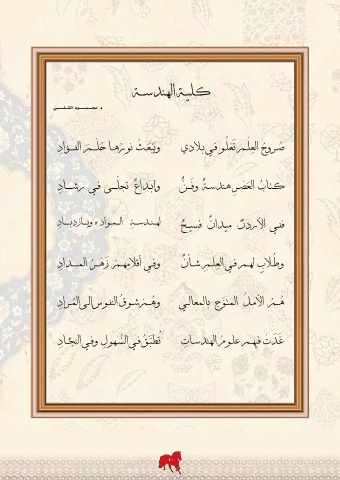 كلية الهندسة
د. محمود الشلبي
صروح العلم تعلو في بلادي وتبعث نورها حلم الفؤاد
كتاب العصر هندسة وفن وإبداع تجلى في رشاد
ففي الأردن ميدان فسيح لهندسة المواد وبازدياد
وطلاب لهم في العلم شأن وفي أقلامهم زهر المداد
هم الأمل المتوج بالمعالي وهم شوق النفوس إلى المراد
غدت فيهم علوم الهندسات تطبق في السهول وفي النجاد